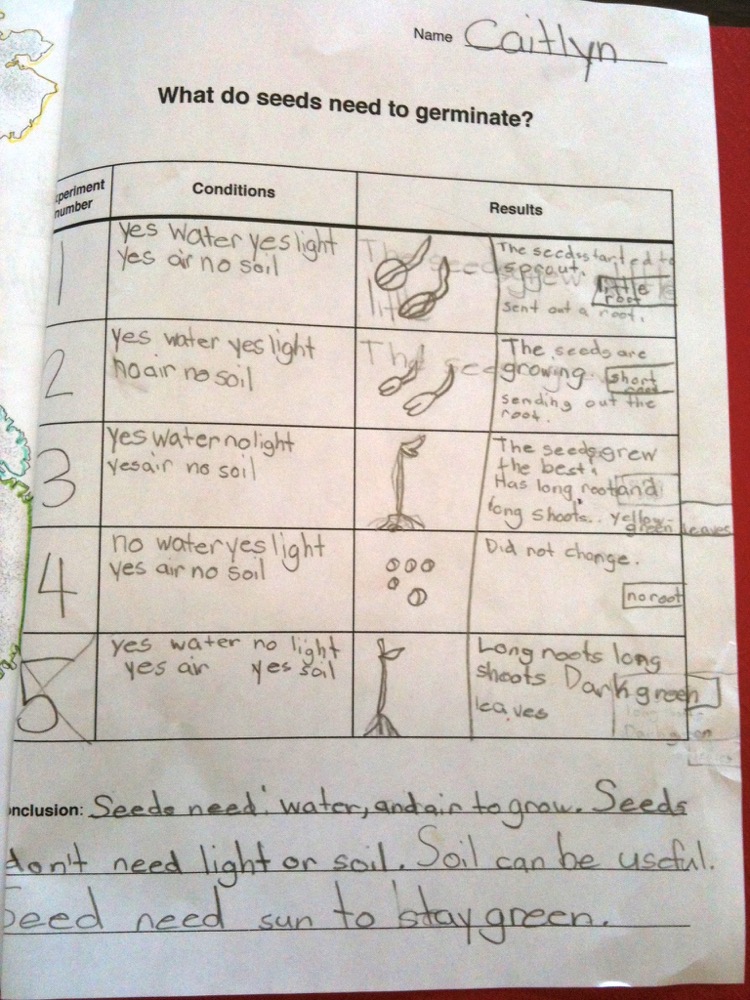 Name Caitlyn
What do seeds need to germinate?
periment number
Conditions
Results
1
yes water yes light
yes air no soil
The seeds started to
sprout. little
root
sent out a root.
2
yes water yes light
no air no soil
The seeds are
growing. short
sending out the
root.
3
yes water no light
yes air no soil
The seeds grew
the best.
Has long root and
long shoots.. yellow-
green leaves
4
no water yes light
yes air no soil
Did not change.
no root
5
yes water no light
yes air yes soil
Long roots long
shoots Dark green
leaves
nclusion: Seeds need water, and air to grow. Seeds
don't need light or soil. Soil can be useful.
Seed need sun to stay green.